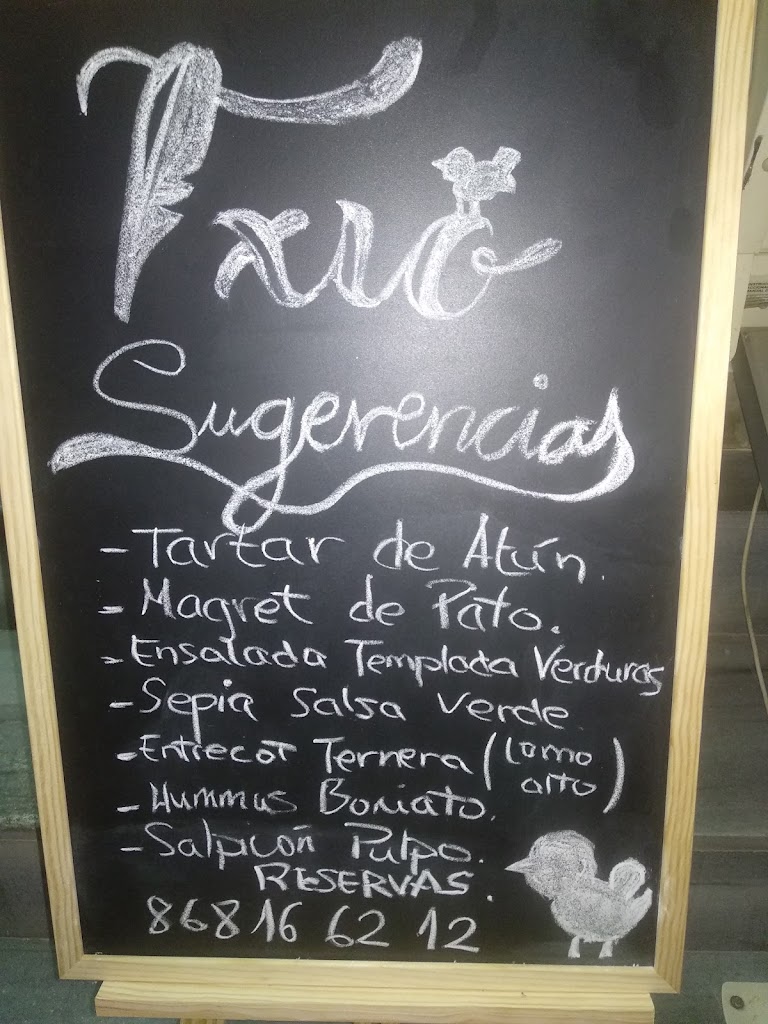 Txio
Sugerencias
- Tartar de Atún.
- Magret de Pato.
- Ensalada Templada Verduras
- Sepia Salsa Verde.
- Entrecot Ternera (Lomo alto)
- Hummus Boniato.
- Salpicón Pulpo.
RESERVAS.
868 16 62 12